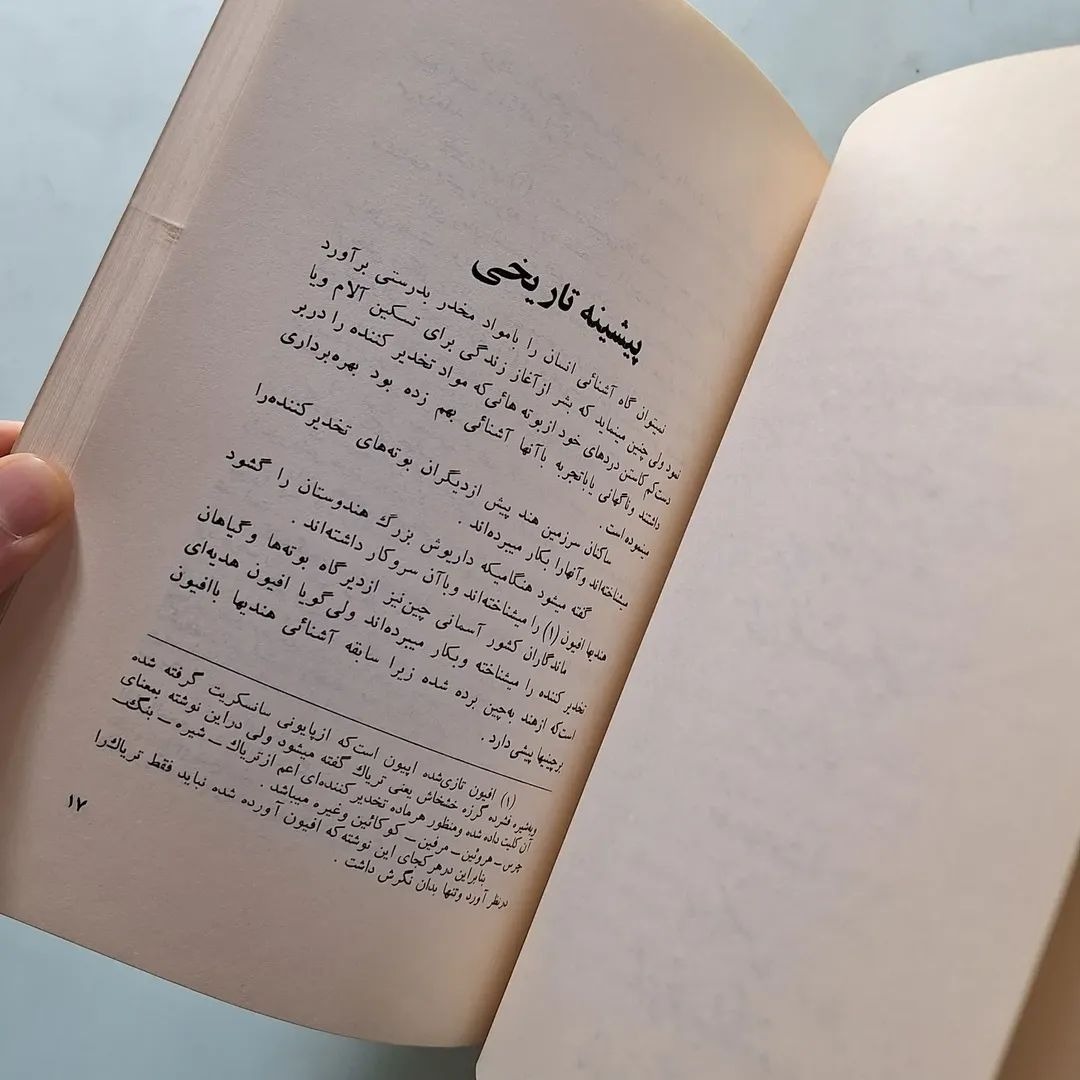 پیشینه تاریخی
نمیتوان گاه آشنائی انسان را بامواد مخدر بدرستی برآورد
نمود ولی چنین مینماید که بشر ازآغاز زندگی برای تسکین آلام ویا
دست‌کم کاستن دردهای خود ازبوته هائی‌که مواد تخدیر کننده را دربر
داشتند وناگهانی یاباتجربه باآنها آشنائی بهم زده بود بهره‌برداری
مینموده است .
ساکنان سرزمین هند پیش ازدیگران بوته‌های تخدیرکننده‌را
میشناخته‌اند وآنهارا بکار میبرده‌اند .
گفته میشود هنگامیکه داریوش بزرگ هندوستان را گشود
هندیها افیون (۱) را میشناخته‌اند وباآن سروکار داشته‌اند .
ماندگاران کشور آسمانی چین‌نیز ازدیرگاه بوته‌ها وگیاهان
تخدیر کننده را میشناخته وبکار میبرده‌اند ولی‌گویا افیون هدیه‌ای
است‌که ازهند به‌چین برده شده زیرا سابقه آشنائی هندیها باافیون
برچینیها پیشی‌دارد .
(۱) افیون تازی‌شده اپیون است‌که ازپایونی سانسکریت گرفته شده
وبه‌شیره فشرده گرزه خشخاش یعنی تریاك گفته میشود ولی دراین نوشته بمعنای
آن کلیت داده شده ومنظور هرماده تخدیر کننده‌ای اعم ازتریاك ـ شیره ـ بنگ
چرس ـ هروئین ـ مرفین ـ کوکائین وغیره میباشد .
بنابراین درهرکجای این نوشته‌که افیون آورده شده نباید فقط تریاك‌را
درنظر آورد وتنها بدان نگرش داشت .
۱۷